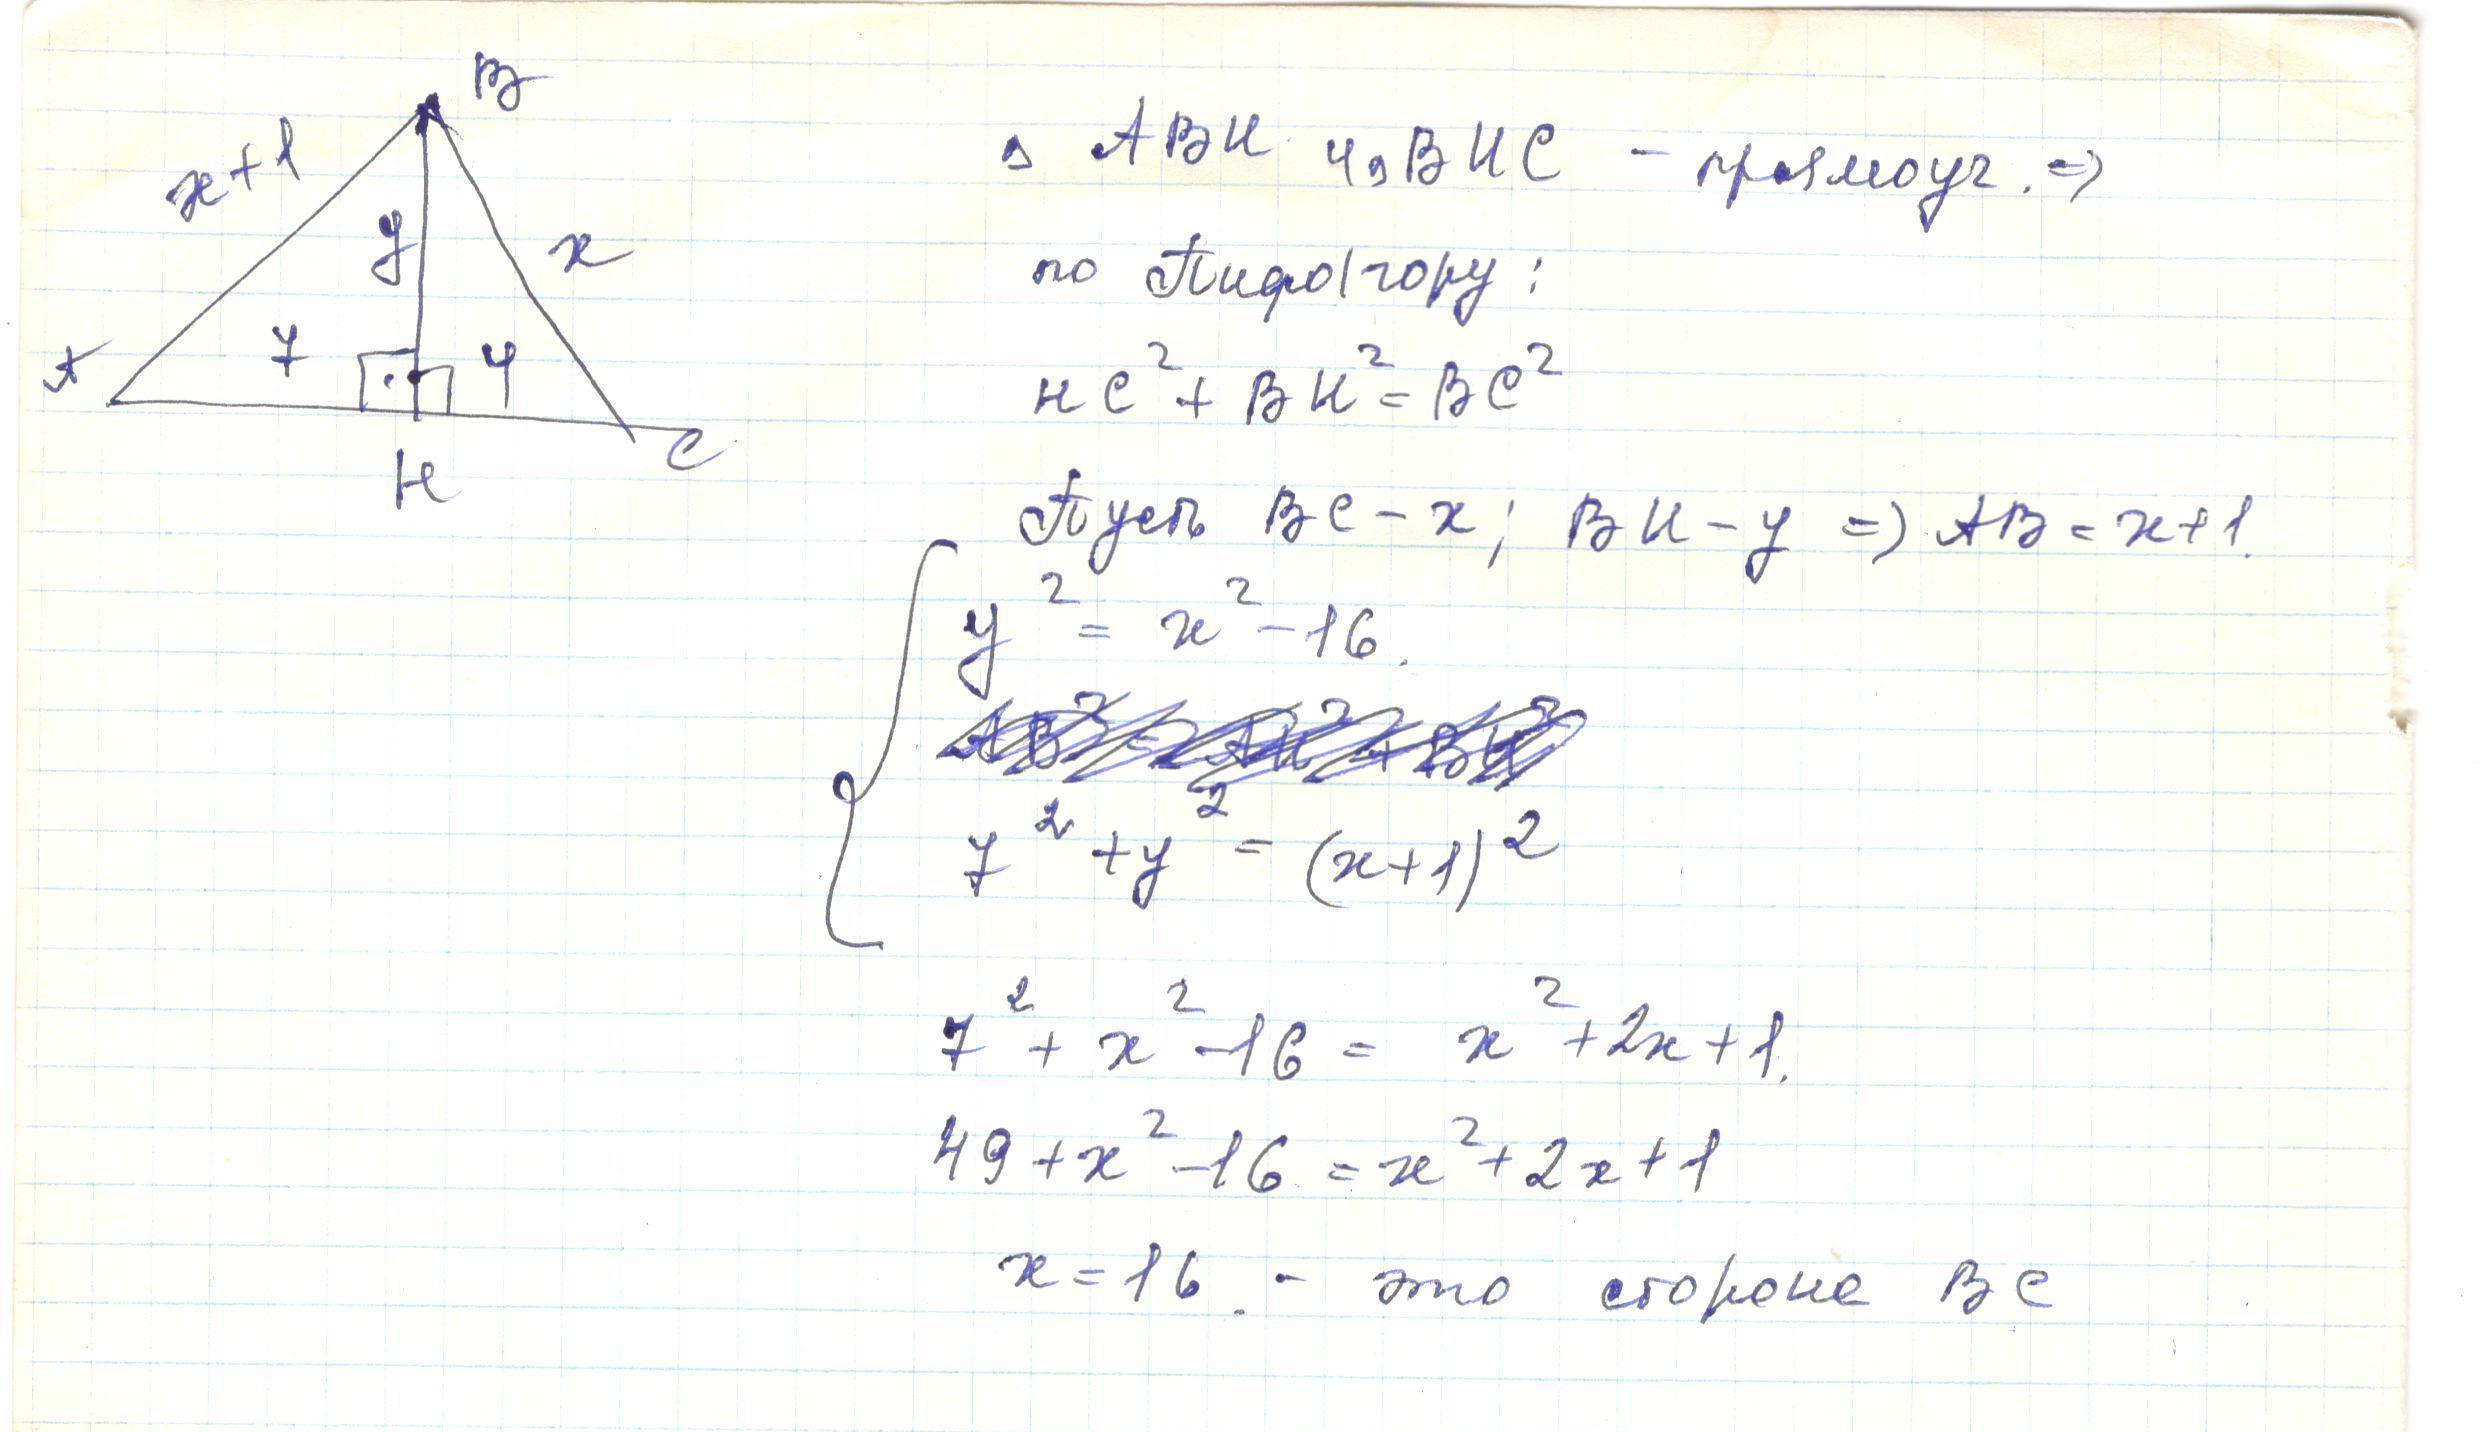 B
x+1
y
x
A
7
4
H
C
△ ABH и △ BHC – прямоуг. =>
по Пифагору:
HC² + BH² = BC²
Пусть BC – x; BH – y => AB = x+1.
y² = x² – 16.
AB² = AH² + BH²
7² + y² = (x+1)²
7² + x² – 16 = x² + 2x + 1.
49 + x² – 16 = x² + 2x + 1
x = 16. – это сторона BC